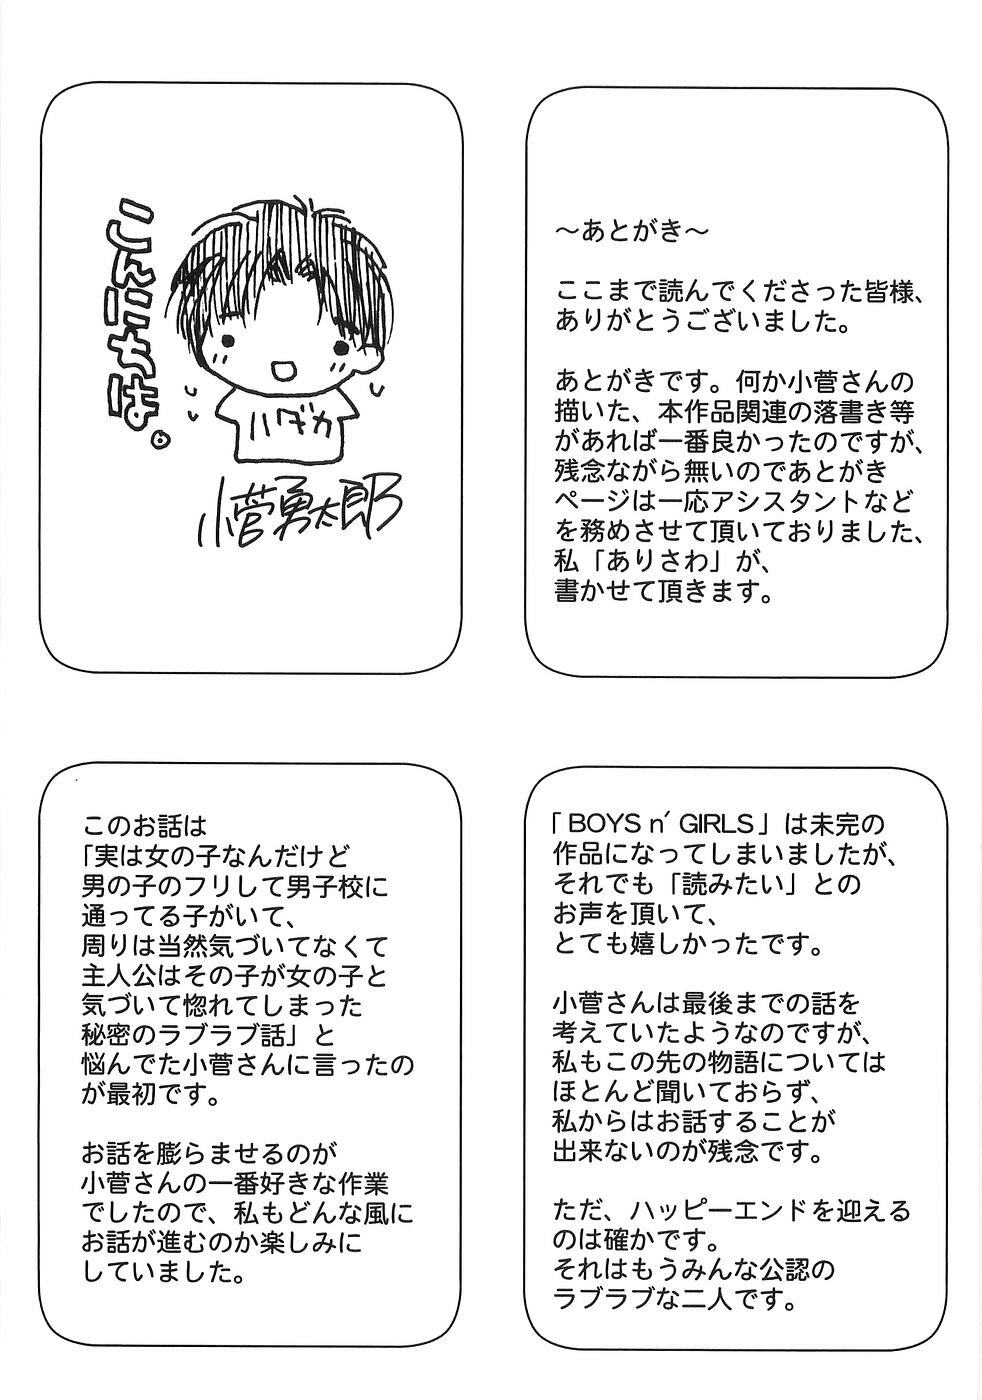 ～あとがき～
ここまで読んでくださった皆様、
ありがとうございました。
あとがきです。何か小菅さんの
描いた、本作品関連の落書き等
があれば一番良かったのですが、
残念ながら無いのであとがき
ページは一応アシスタントなど
を務めさせて頂いておりました、
私「ありさわ」が、
書かせて頂きます。
こんにちは。
ハダカ
小菅勇太郎
「BOYS n' GIRLS」は未完の
作品になってしまいましたが、
それでも「読みたい」との
お声を頂いて、
とても嬉しかったです。
小菅さんは最後までの話を
考えていたようなのですが、
私もこの先の物語については
ほとんど聞いておらず、
私からはお話することが
出来ないのが残念です。
ただ、ハッピーエンドを迎える
のは確かです。
それはもうみんな公認の
ラブラブな二人です。
このお話は
「実は女の子なんだけど
男の子のフリして男子校に
通ってる子がいて、
周りは当然気づいてなくて
主人公はその子が女の子と
気づいて惚れてしまった
秘密のラブラブ話」と
悩んでた小菅さんに言ったの
が最初です。
お話を膨らませるのが
小菅さんの一番好きな作業
でしたので、私もどんな風に
お話が進むのか楽しみに
していました。